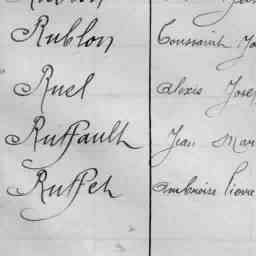 Rublon Toussaint Jo
Ruel Alexis Jose
Ruffault Jean Mar
Ruffet Ambroise Pierre